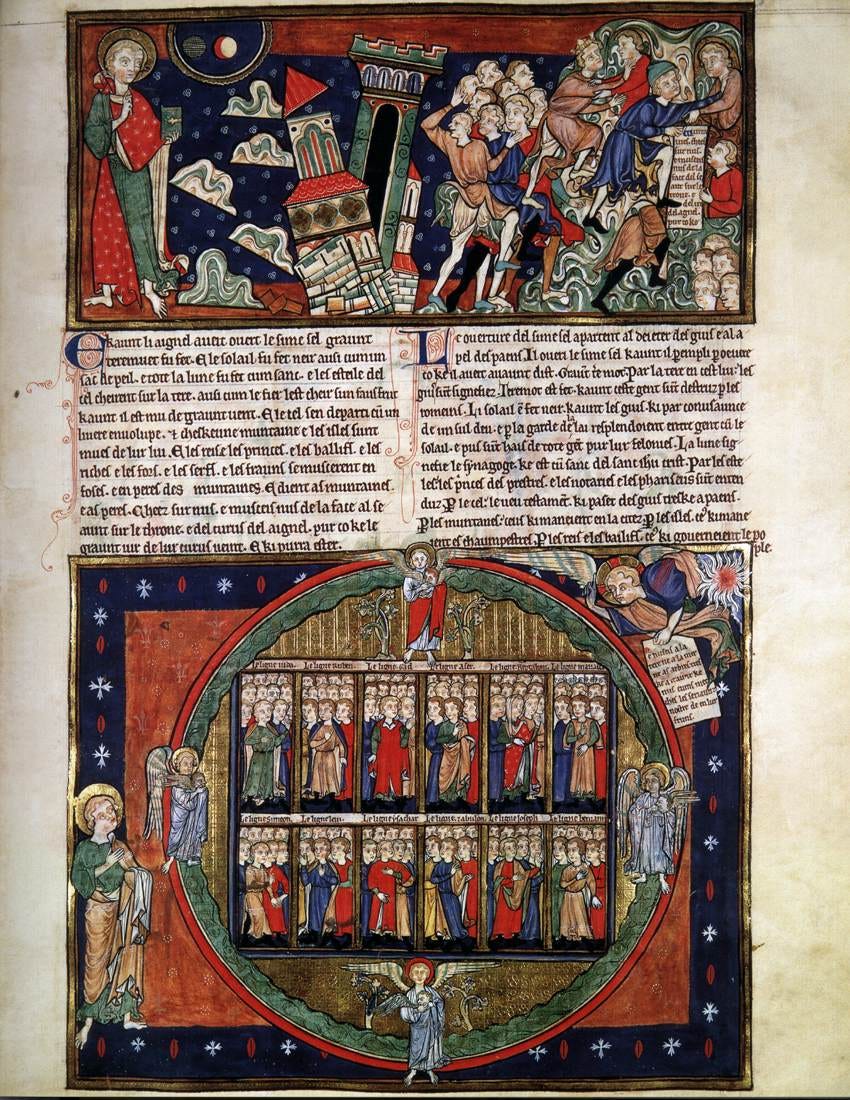 chez
sur nus.
e muscez
nus de la
face del se
ant sur le
trone. e
del cur
del aignel.
pur co ke
E kaunt li aignel aveit overt le sime sel graunt
teremuet fu fet. E le solail fu fet neir aus cum un
sac de peil. e tote la lune fu fet cum sanc. e les esteiles del
cel cheirent sur la tere. ausi cum le fier lest cheir sun faus frut
kaunt il est mu de graunt vent. E le cel sen departi cum un
livere envolupe. & cheskune muntaine e les isles sunt
mues de lur liu. E les reis e les princes. e les baillifs. e les
riches e les fors. e les serfs. e les frauns se muscerent en
foses. e en peres des muntaines. E dient as muntaines
e as peres. Chez sur nus. e muscez nus de la face al se
aunt sur le throne. e del curus del aignel. pur co ke le
graunt iur de lur curus veent. E ki purra ester.
Le overture del sime sel apartent al deieter des gius e al a
pel des paens. Il overi le sime sel kaunt il
co ke il aveit avaunt dist. Par la tere en cest liu. les
gius sunt signefiez. Teremot est fet. kaunt ceste gent sunt destruz par les
romeins. Li solail est fet neir. kaunt les gius. ki par conusaunce
de un sul deu. e par la garde de la lei resplendoient entre gent cum le
solail. e pus sunt hais de tote gent pur lur felonies. La lune sig
nefie le synagoge. ke est cum sanc del sanc ihu crist. Par les este
les. les princes des prestres. e les notaries e les phariseus sunt enten
duz. Par le cel. le veu testament. ki passet des gius treske a paens.
Par les muntaines. ceus ki maneient en la cite. Par les isles. ceus ki mane
ient es chaumpestres. Par les reis e les baillifs. ceus ki governeient le po
ple.
Le ligne iuda. Le ligne ruben. Le ligne gad. Le ligne aser. Le ligne neptalim. Le ligne manasse
Le ligne simeon. Le ligne levi. Le ligne ysachar. Le ligne zabulon. Le ligne ioseph. Le ligne beniamin
e nuisez a la
terre ne a la mer
ne as arbres tres
ke a taunt ke
nus eums mer
chez les serfs
nostre deu en lur
fruns.